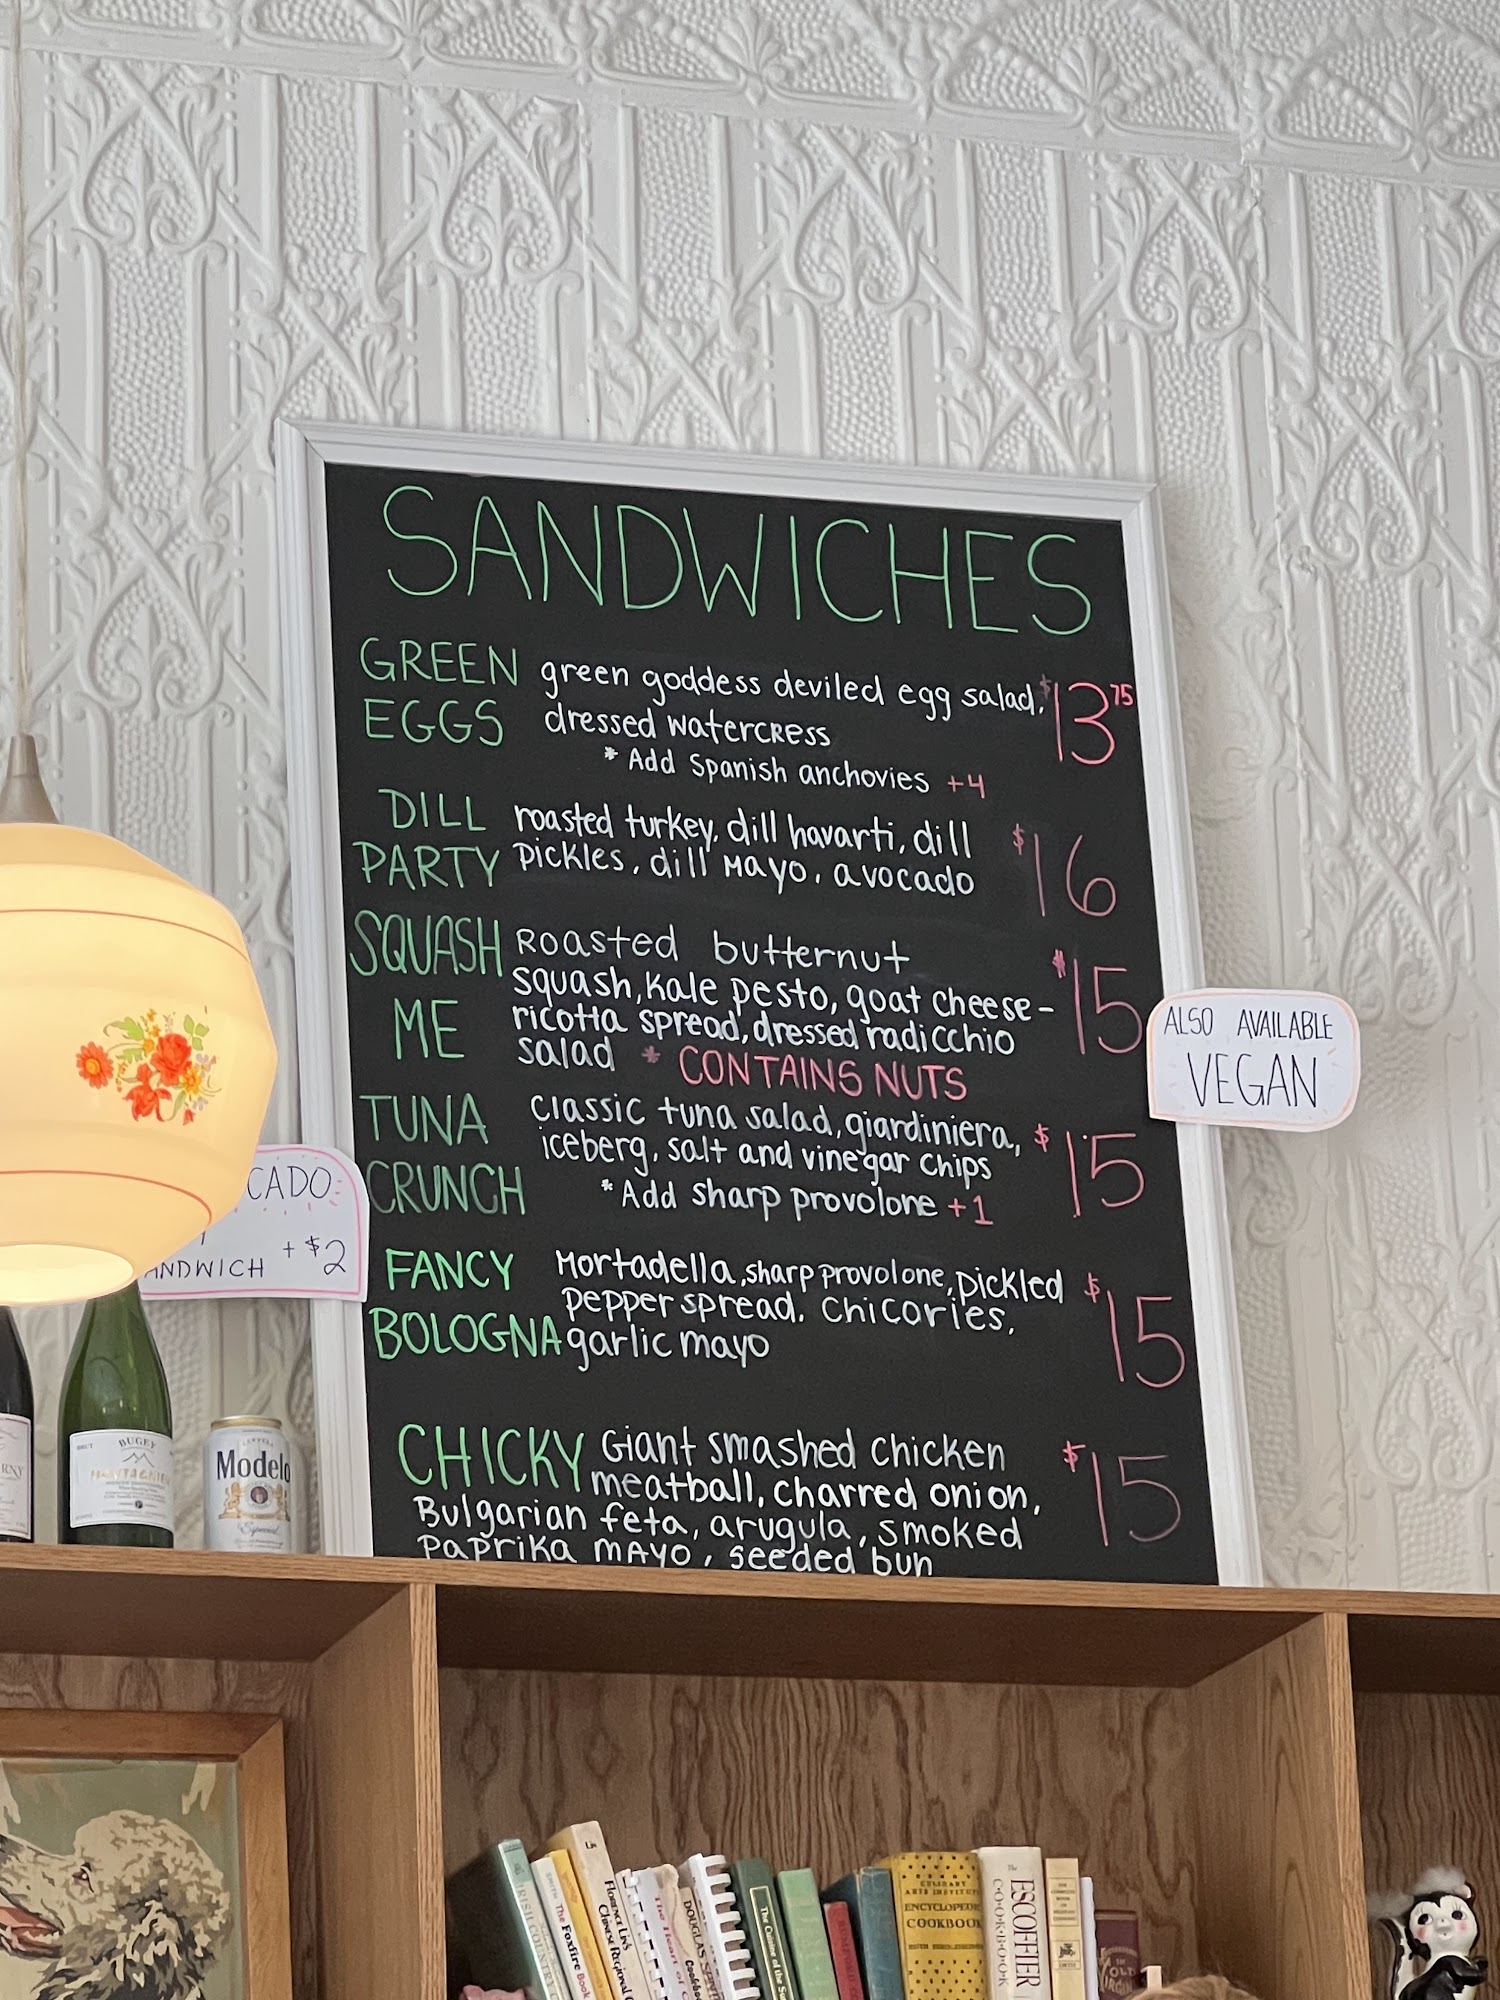 SANDWICHES
GREEN EGGS
green goddess deviled egg salad, $13.75
dressed watercress
* Add Spanish anchovies +4
DILL PARTY
roasted turkey, dill havarti, dill
pickles, dill mayo, avocado
$16
SQUASH ME
Roasted butternut
squash, kale pesto, goat cheese-
ricotta spread, dressed radicchio
salad * CONTAINS NUTS
$15
ALSO AVAILABLE
VEGAN
TUNA CRUNCH
classic tuna salad, giardiniera,
iceberg, salt and vinegar chips
* Add sharp provolone +1
$15
CADO
ANDWICH + $2
FANCY BOLOGNA
Mortadella, sharp provolone, pickled
pepper spread, chicories,
garlic mayo
$15
CHICKY
Giant smashed chicken
meatball, charred onion,
Bulgarian feta, arugula, smoked
paprika mayo, seeded bun
$15
BRUT
BUGEY
Modelo
Especial
The Foxfire Book
CULINARY
ARTS INSTITUTE
ENCYCLOPEDIC
COOKBOOK
The
ESCOFFIER
COOKBOOK